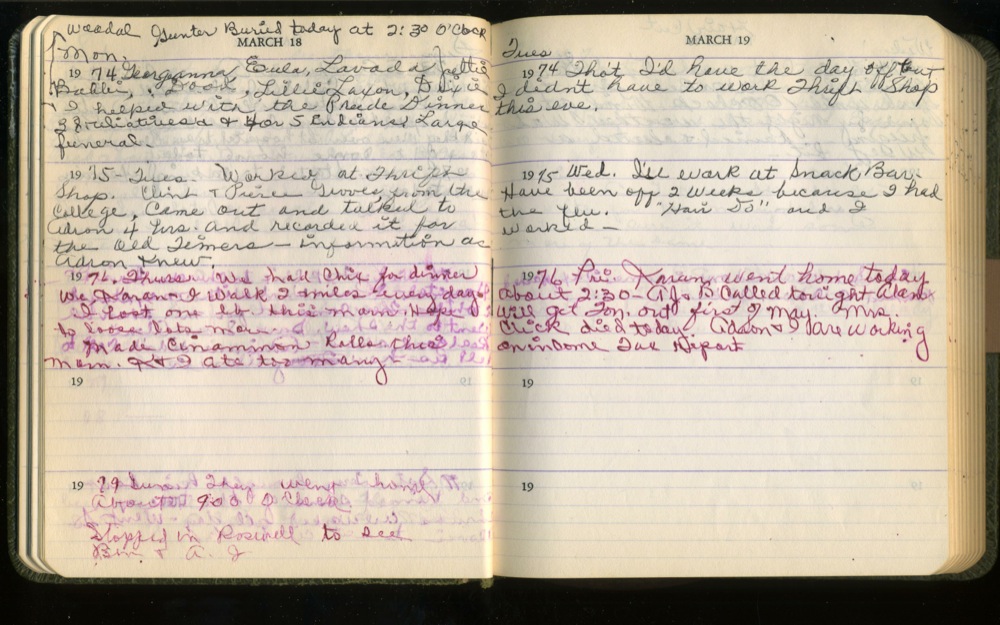 Woodal Gunter Buried today at 2:30 O'Clock
MARCH 18
Mon.
1974 Georganna, Eula, Lavada, Pottie
Dood, Lillie Laxon, Dixie
I helped with the Prade Dinner
38 relatives & 4 or 5 Indians Large
funeral.
1975 - Tues. Worked at Thrift
Shop. Clint + from the
College, Came out and talked to
Adron 4 hrs. and recorded it for
the Old Timers - information as
Adron knew.
1976. Thurs. We had Chix for dinner
We, Karan + I walk 2 miles every day
I lost one lb. this morn. Hope I
to loose lots more
Made Cinaminon Rolls this
morn. K + I ate too many
19
1979 Sun. They went home
About 9:00 O Clock
Stopped in Roswell to see
Bim + A. J.
MARCH 19
Tues
1974 Thot I'd have the day off but
I didn't have to work Thrift Shop
this eve.
1975 Wed. I'll work at Snack Bar.
Have been off 2 weeks because I had
the flu. "Hair Do" and I
worked -
1976 Fri. Karan went home today
about 2:30 - A.J. B Called tonight Alan
will get Jon. out first of May. Mrs.
Crick died today. Adron + I are working
on income Tax Report
19
19